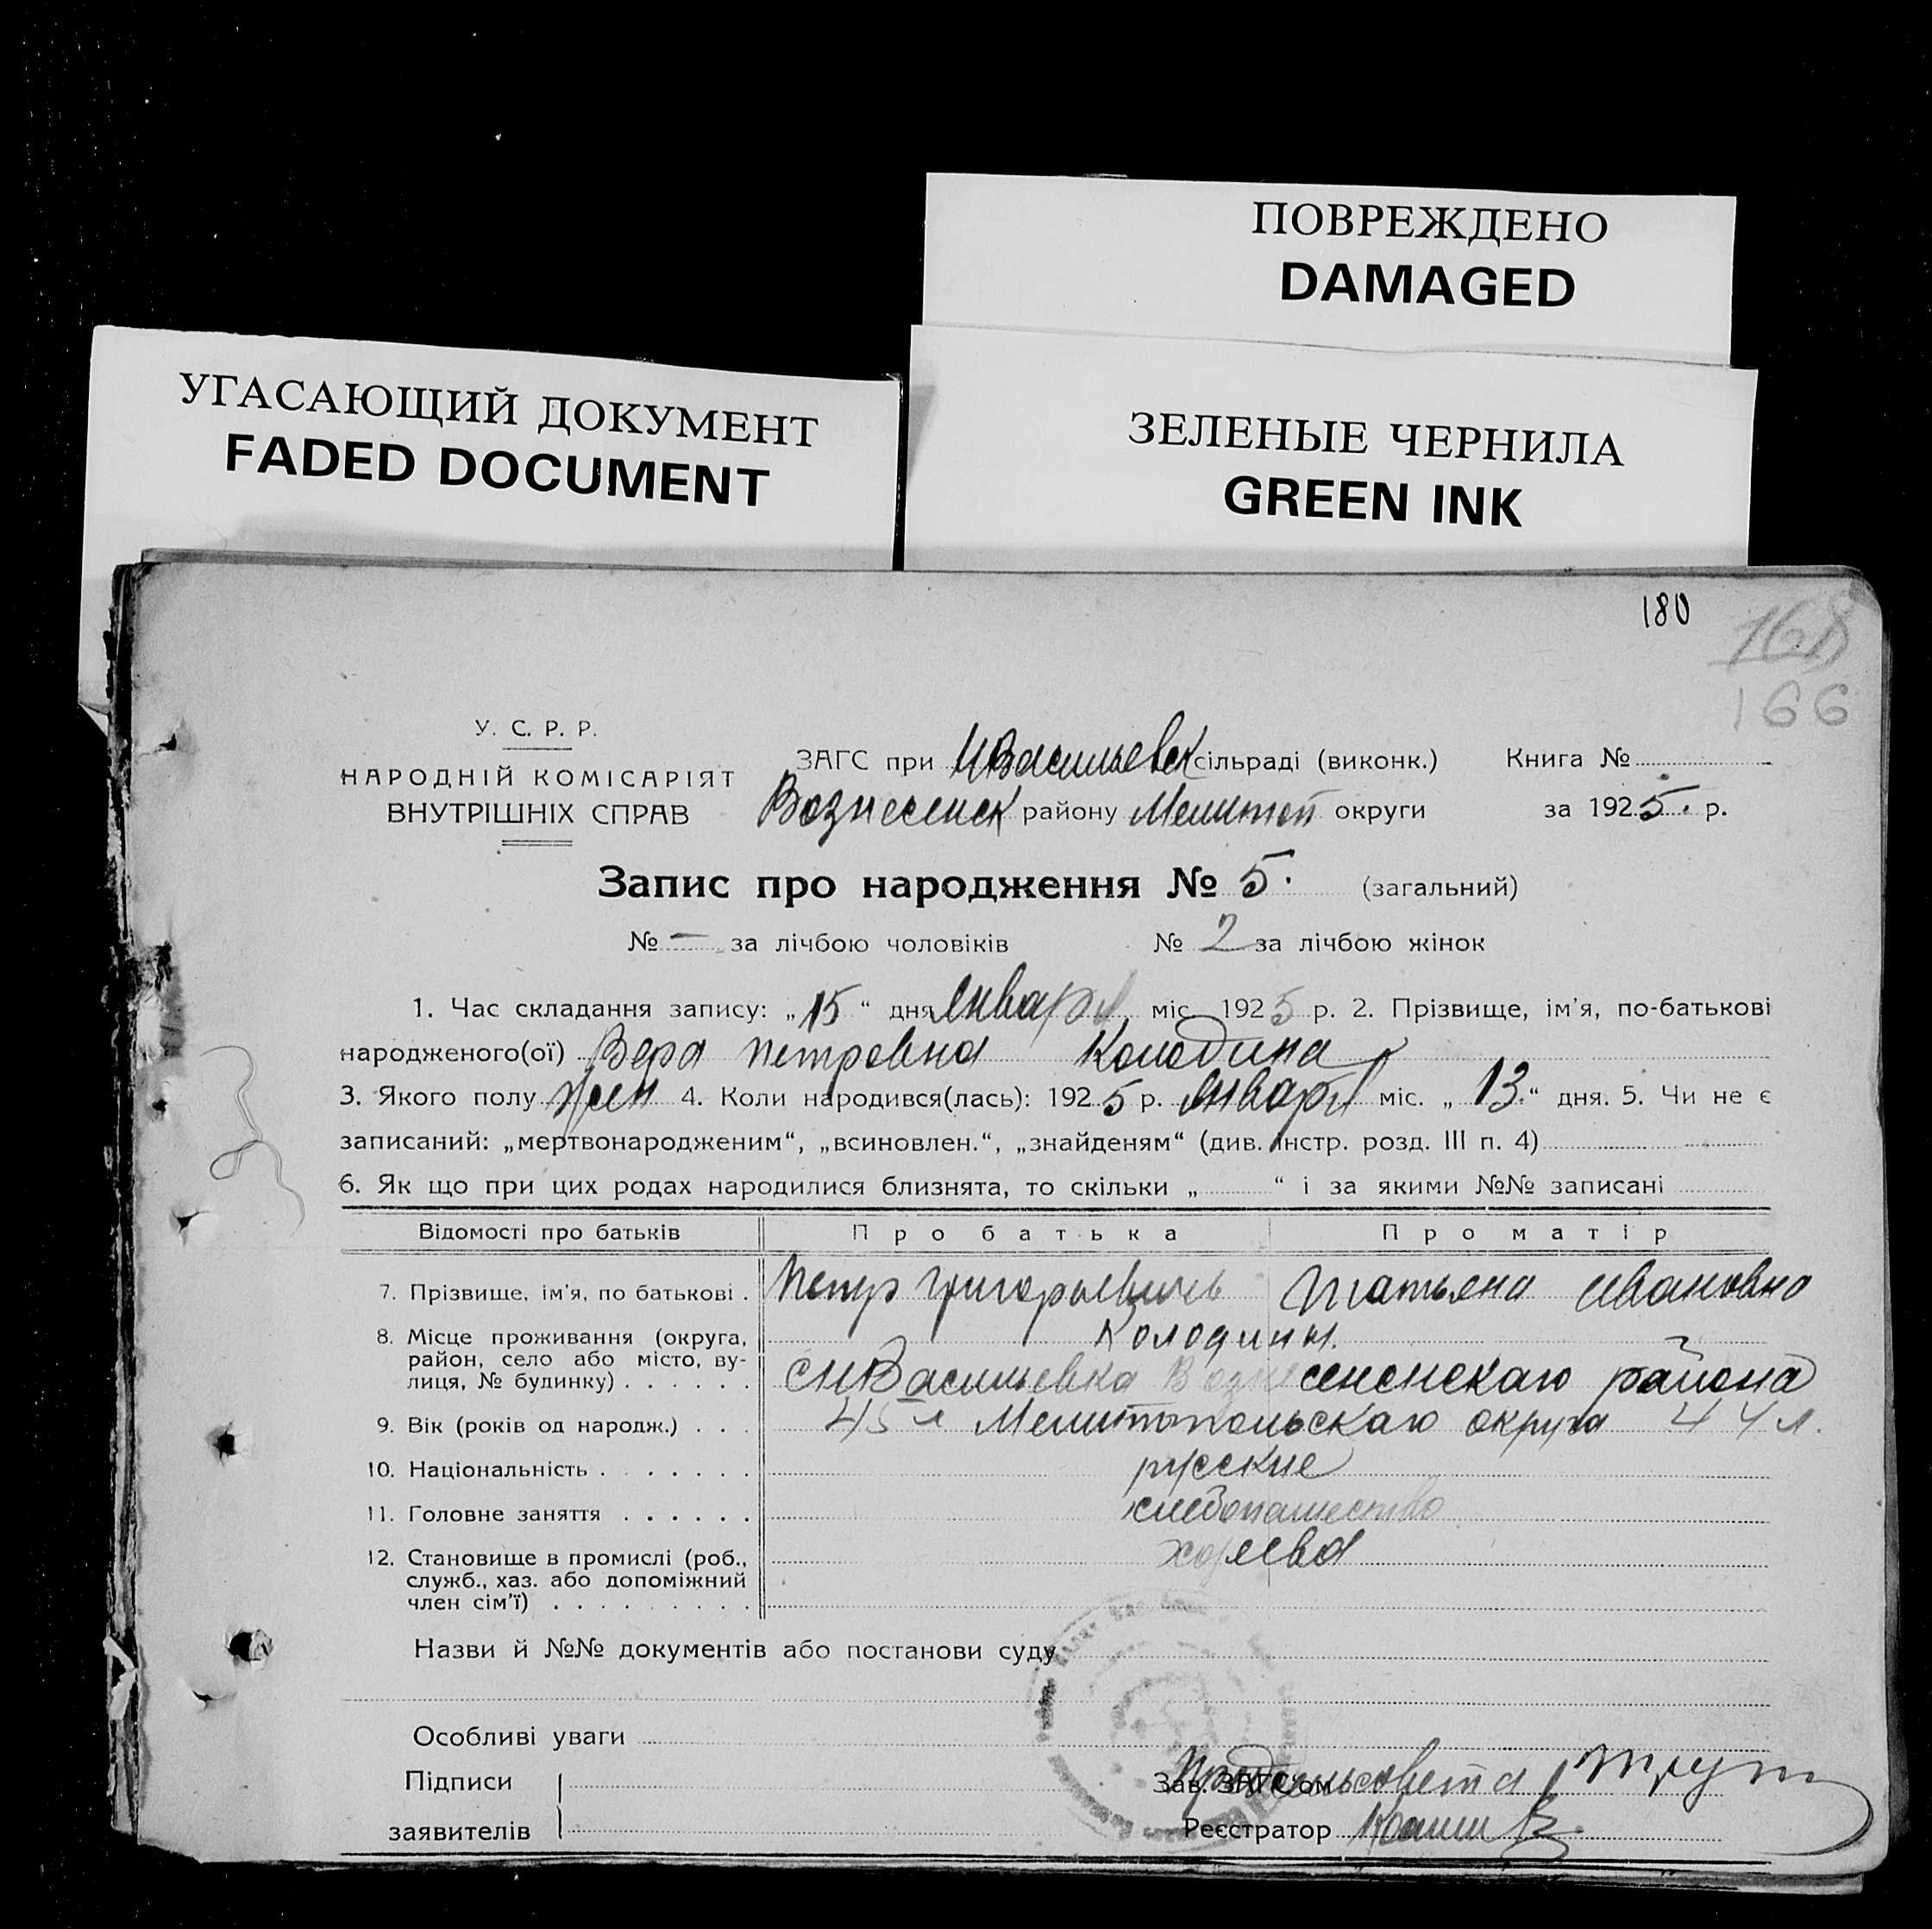 ПОВРЕЖДЕНО
DAMAGED
УГАСАЮЩИЙ ДОКУМЕНТ
FADED DOCUMENT
ЗЕЛЕНЫЕ ЧЕРНИЛА
GREEN INK
180
168
166
У. С. Р. Р.
НАРОДНІЙ КОМІСАРІЯТ
ВНУТРІШНІХ СПРАВ
ЗАГС при НВасильевск сільраді (виконк.) Книга №
Вознесенск району Мелитоп округи за 1925. р.
Запис про народження № 5. (загальний)
№ – за лічбою чоловіків № 2 за лічбою жінок
1. Час складання запису: „15“ дня Января міс. 1925 р. 2. Прізвище, ім'я, по-батькові
народженого(ої) Вера Петровна Колодина
3. Якого полу жен 4. Коли народився(лась): 1925 р. Января міс. „13.“ дня. 5. Чи не є
записаний: „мертвонародженим“, „всиновлен.“, „знайденям“ (див. інстр. розд. III п. 4)
6. Як що при цих родах народилися близнята, то скільки „ “ і за якими №№ записані
Відомості про батьків Про батька Про матір
7. Прізвище, ім'я, по батькові . Петр Григорьевичь Татьяна Ивановна
Колодины.
8. Місце проживання (округа,
район, село або місто, ву-
лиця, № будинку) . . . . . . с НВасильевка Вознесененскаго района
9. Вік (років од народж.) . . . 45 л Мелитопольскаго округа 44 л.
10. Національність . . . . . . . русские
11. Головне заняття . . . . . . хлебопашество
12. Становище в промислі (роб.,
служб., хаз. або допоміжний
член сім'ї) . . . . . . . . .
Назви й №№ документів або постанови суду
Особливі уваги
Підписи
заявителів
Зав. ЗАГС'ом
Реєстратор